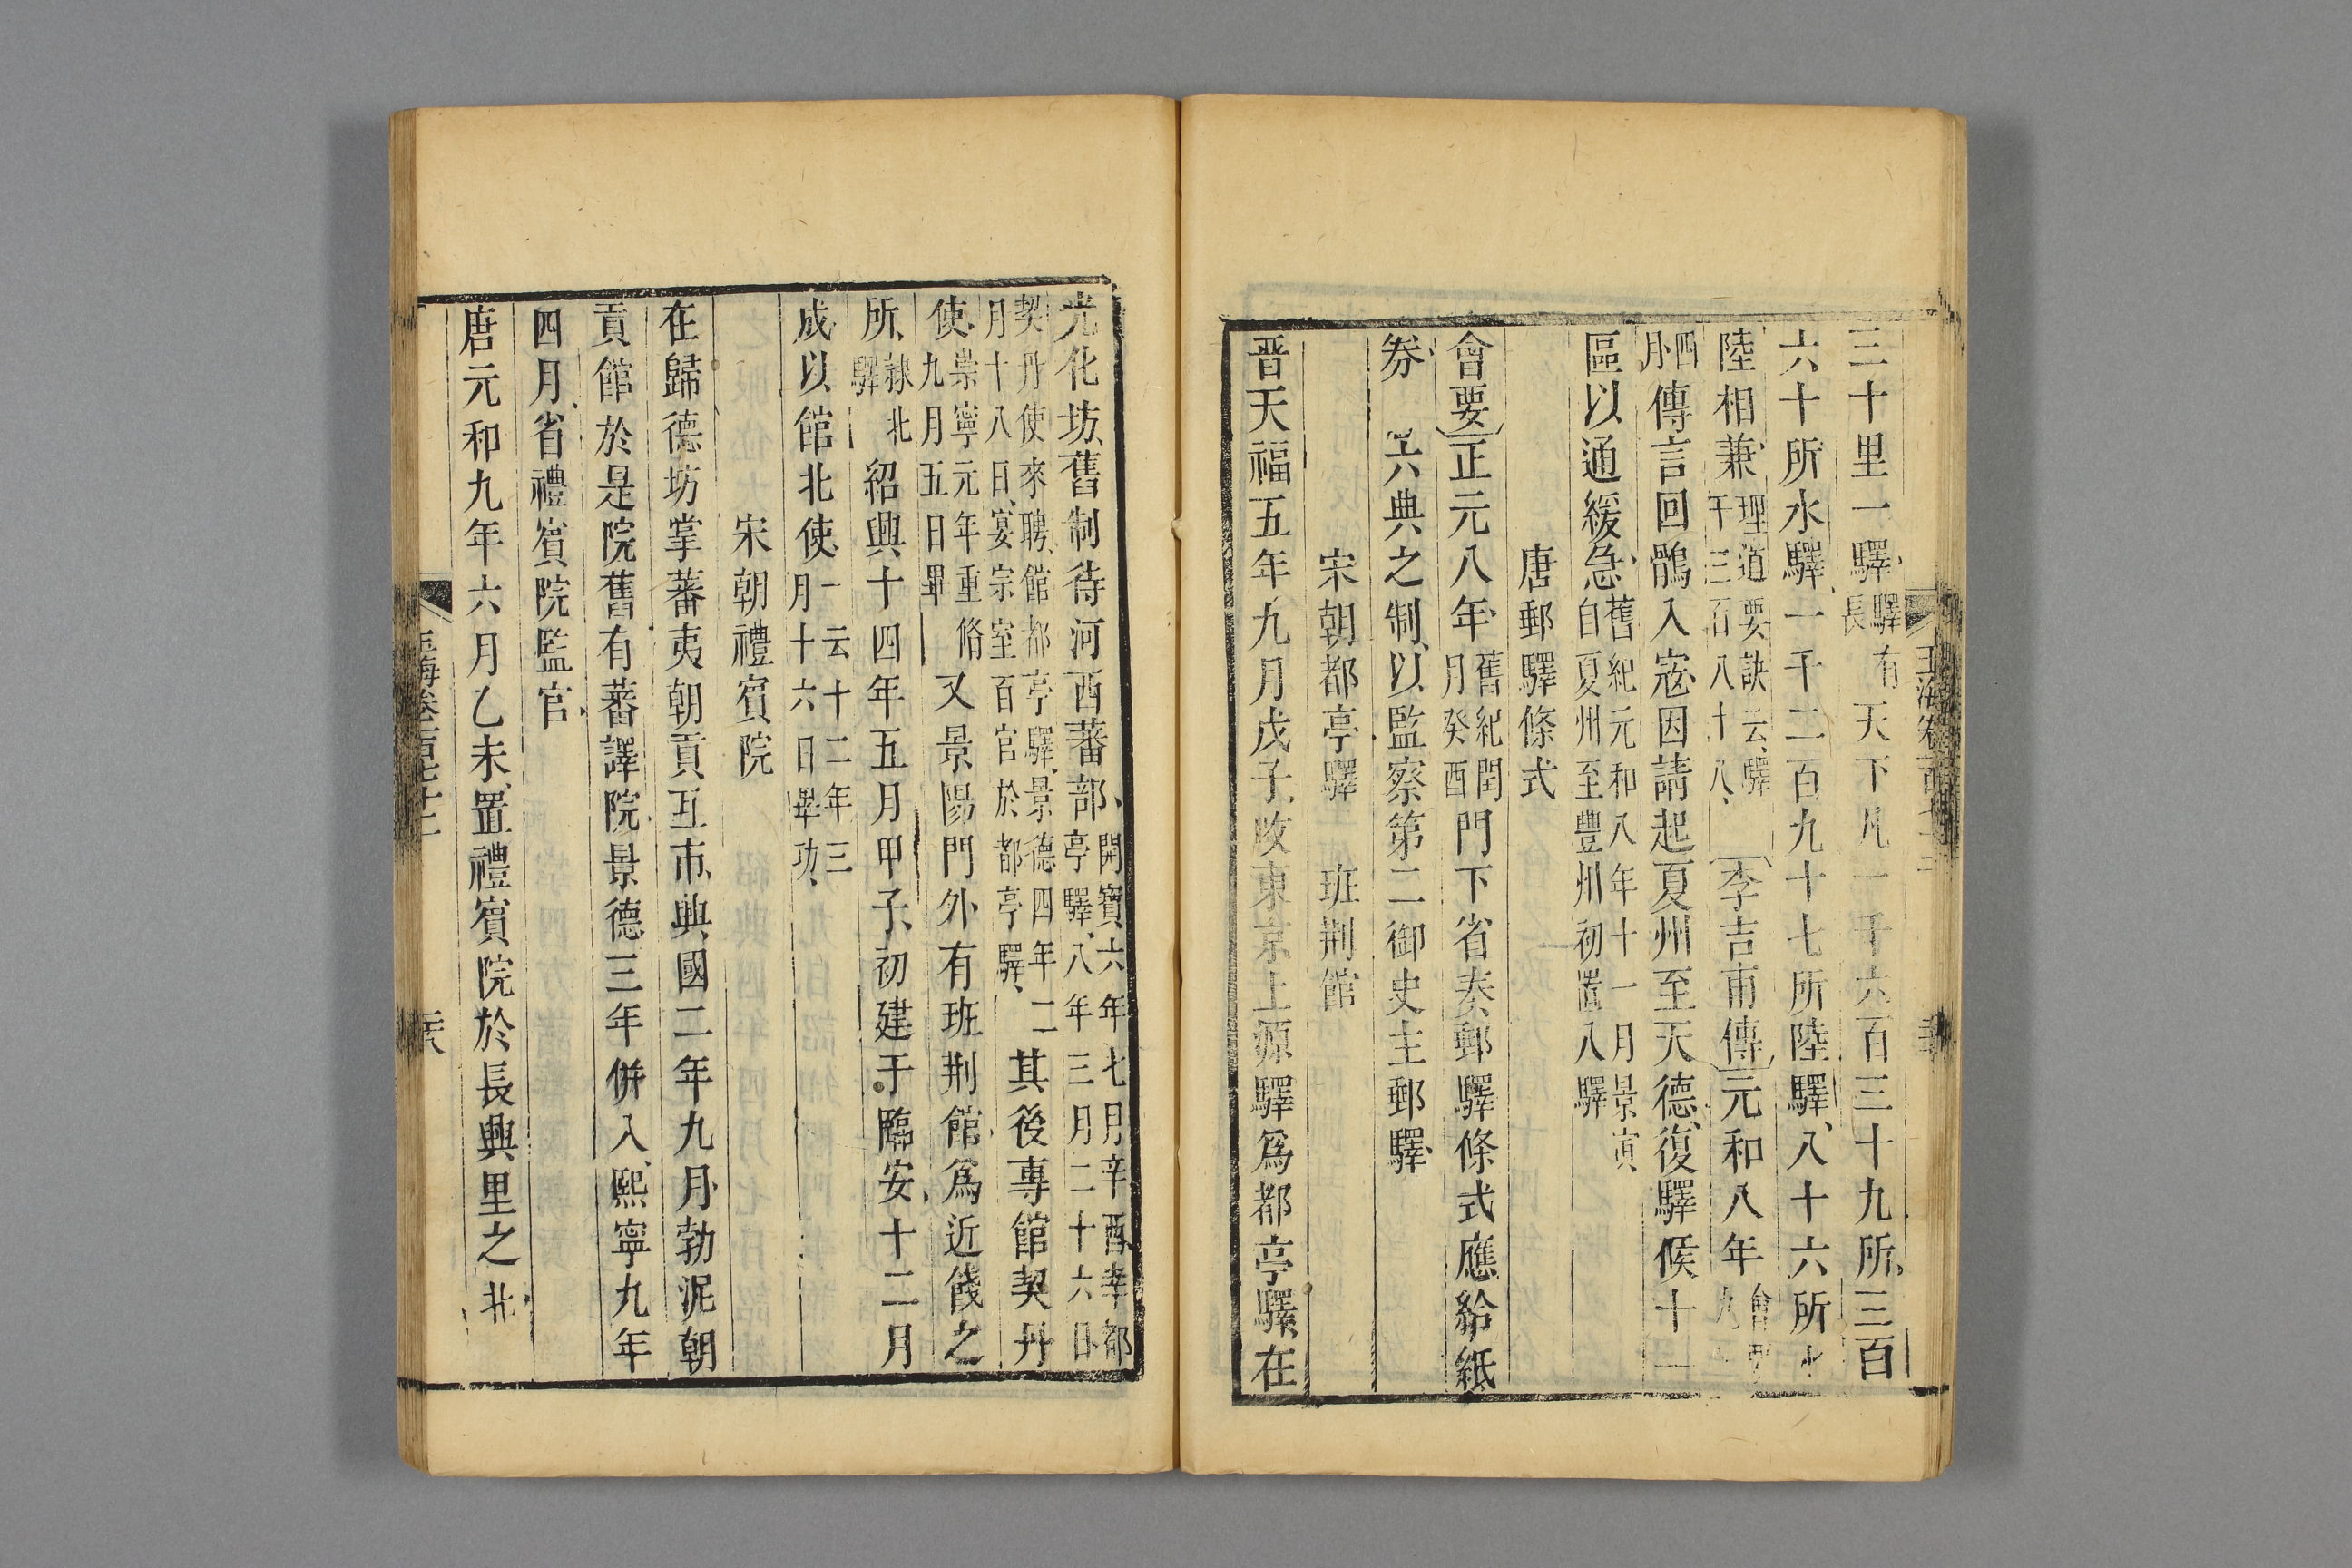 三十里一驛驛有長天下凡一千六百三十九所三百
六十所水驛一千二百九十七所陸驛八十六所水
陸相兼理道要訣云驛千三百八十八李吉甫傳元和八年會要九年
四月傳言回鶻入寇因請起夏州至天德復驛候十一
區以通緩急舊紀元和八年十一月景寅自夏州至豐州初置八驛
唐郵驛條式
會要正元八年舊紀閏月癸酉門下省奏郵驛條式應給紙
券六典之制以監察第二御史主郵驛
宋朝都亭驛 班荆館
晋天福五年九月戊子改東京上源驛爲都亭驛在
光化坊舊制待河西蕃部開寶六年七月辛酉幸都亭驛八年三月二十六日
契丹使來聘館都亭驛景德四年二月十八日宴宗室百官於都亭驛其後專館契丹
使崇寧元年重脩九月五日畢又景陽門外有班荆館爲近餞之
所隸北驛紹興十四年五月甲子初建于臨安十二月
成以館北使一云十二年三月十六日畢功
宋朝禮賓院
在歸德坊掌蕃夷朝貢互市興國二年九月勃泥朝
貢館於是院舊有蕃譯院景德三年併入熙寧九年
四月省禮賓院監官
唐元和九年六月乙未置禮賓院於長興里之北
玉海卷一百七十二